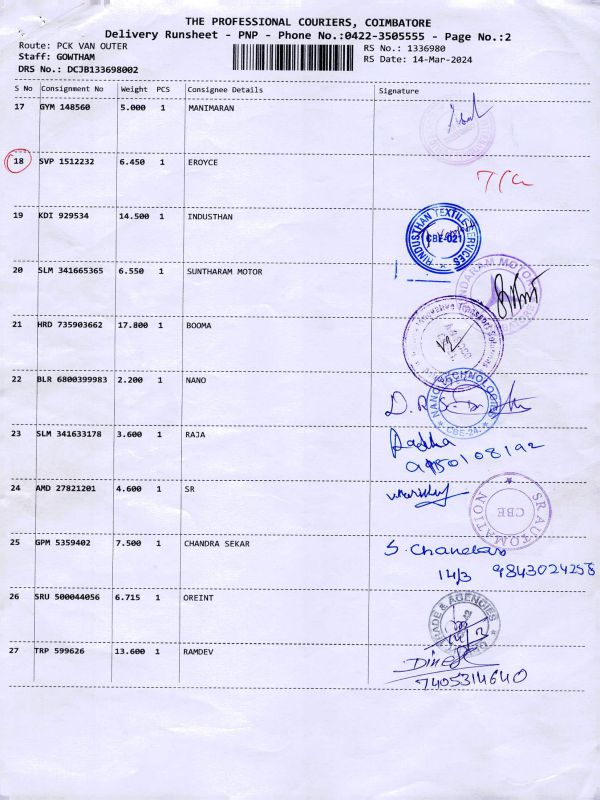 THE PROFESSIONAL COURIERS, COIMBATORE
Delivery Runsheet - PNP - Phone No.:0422-3505555 - Page No.:2
Route: PCK VAN OUTER RS No.: 1336980
Staff: GOWTHAM RS Date: 14-Mar-2024
DRS No.: DCJB133698002
S No Consignment No Weight PCS Consignee Details Signature
17 GYM 148560 5.000 1 MANIMARAN
18 SVP 1512232 6.450 1 EROYCE
19 KDI 929534 14.500 1 INDUSTHAN
HINDUSTHAN TEXTILE SERVICES
CBE-021
20 SLM 341665365 6.550 1 SUNTHARAM MOTOR
21 HRD 735903662 17.800 1 BOOMA
22 BLR 6800399983 2.200 1 NANO
NANO TECHNOLOGIES
CBE-24
23 SLM 341633178 3.600 1 RAJA
Radha
24 AMD 27821201 4.600 1 SR
SR AUTOMATION
CBE
25 GPM 5359402 7.500 1 CHANDRA SEKAR
S. Chandar
14/3 9843024258
26 SRU 500044056 6.715 1 OREINT
TRADE & AGENCIES
27 TRP 599626 13.600 1 RAMDEV
DINESH
7405314640